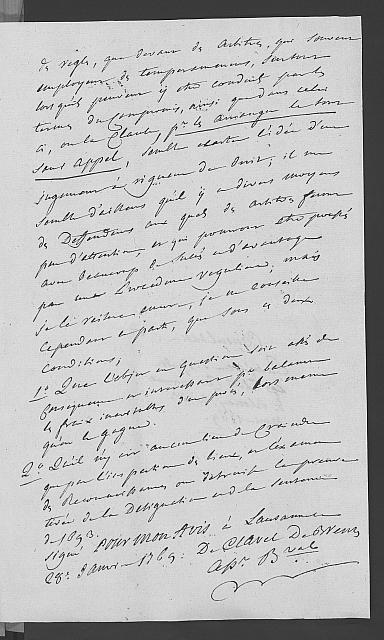 de règles, que devant des arbitres, qui souvent
employent des temperamens, surtout
lorsqu'ils peuvent y etre conduit par les
termes du compromis, ainsi que dans celui
ci, ou la Clause, pr les arranger le tout
sans Appel, semble ecarter l'idée d'un
jugement à rigueur de Droit; il me
semble d'ailleurs qu'il y a divers moyens
de Deffendeur aux quels des arbitres feront
peu d'attention, et qui pourront etre proposés
avec beaucoup de succès et d'avantage
par une Procedure reguliere, mais
je ne conseille
cependant ce parti, que sous ces deux
Conditions;
1º Que l'objet en question soit assés de
consequence et interessant pr balancer
les fraix inevitables d'un procès, lors meme
qu'on le gagne.
2º Qu'il n'y ait aucun lieu de Craindre
que par l'inspection des lieux, et l'examen
des Reconnoissances on detruit la preuve
tirée de la Designation et de la sentence
de 1693.
signé Pour Mon Avis à Lausanne
28e Janvr 1769. De Clavel De Brenles